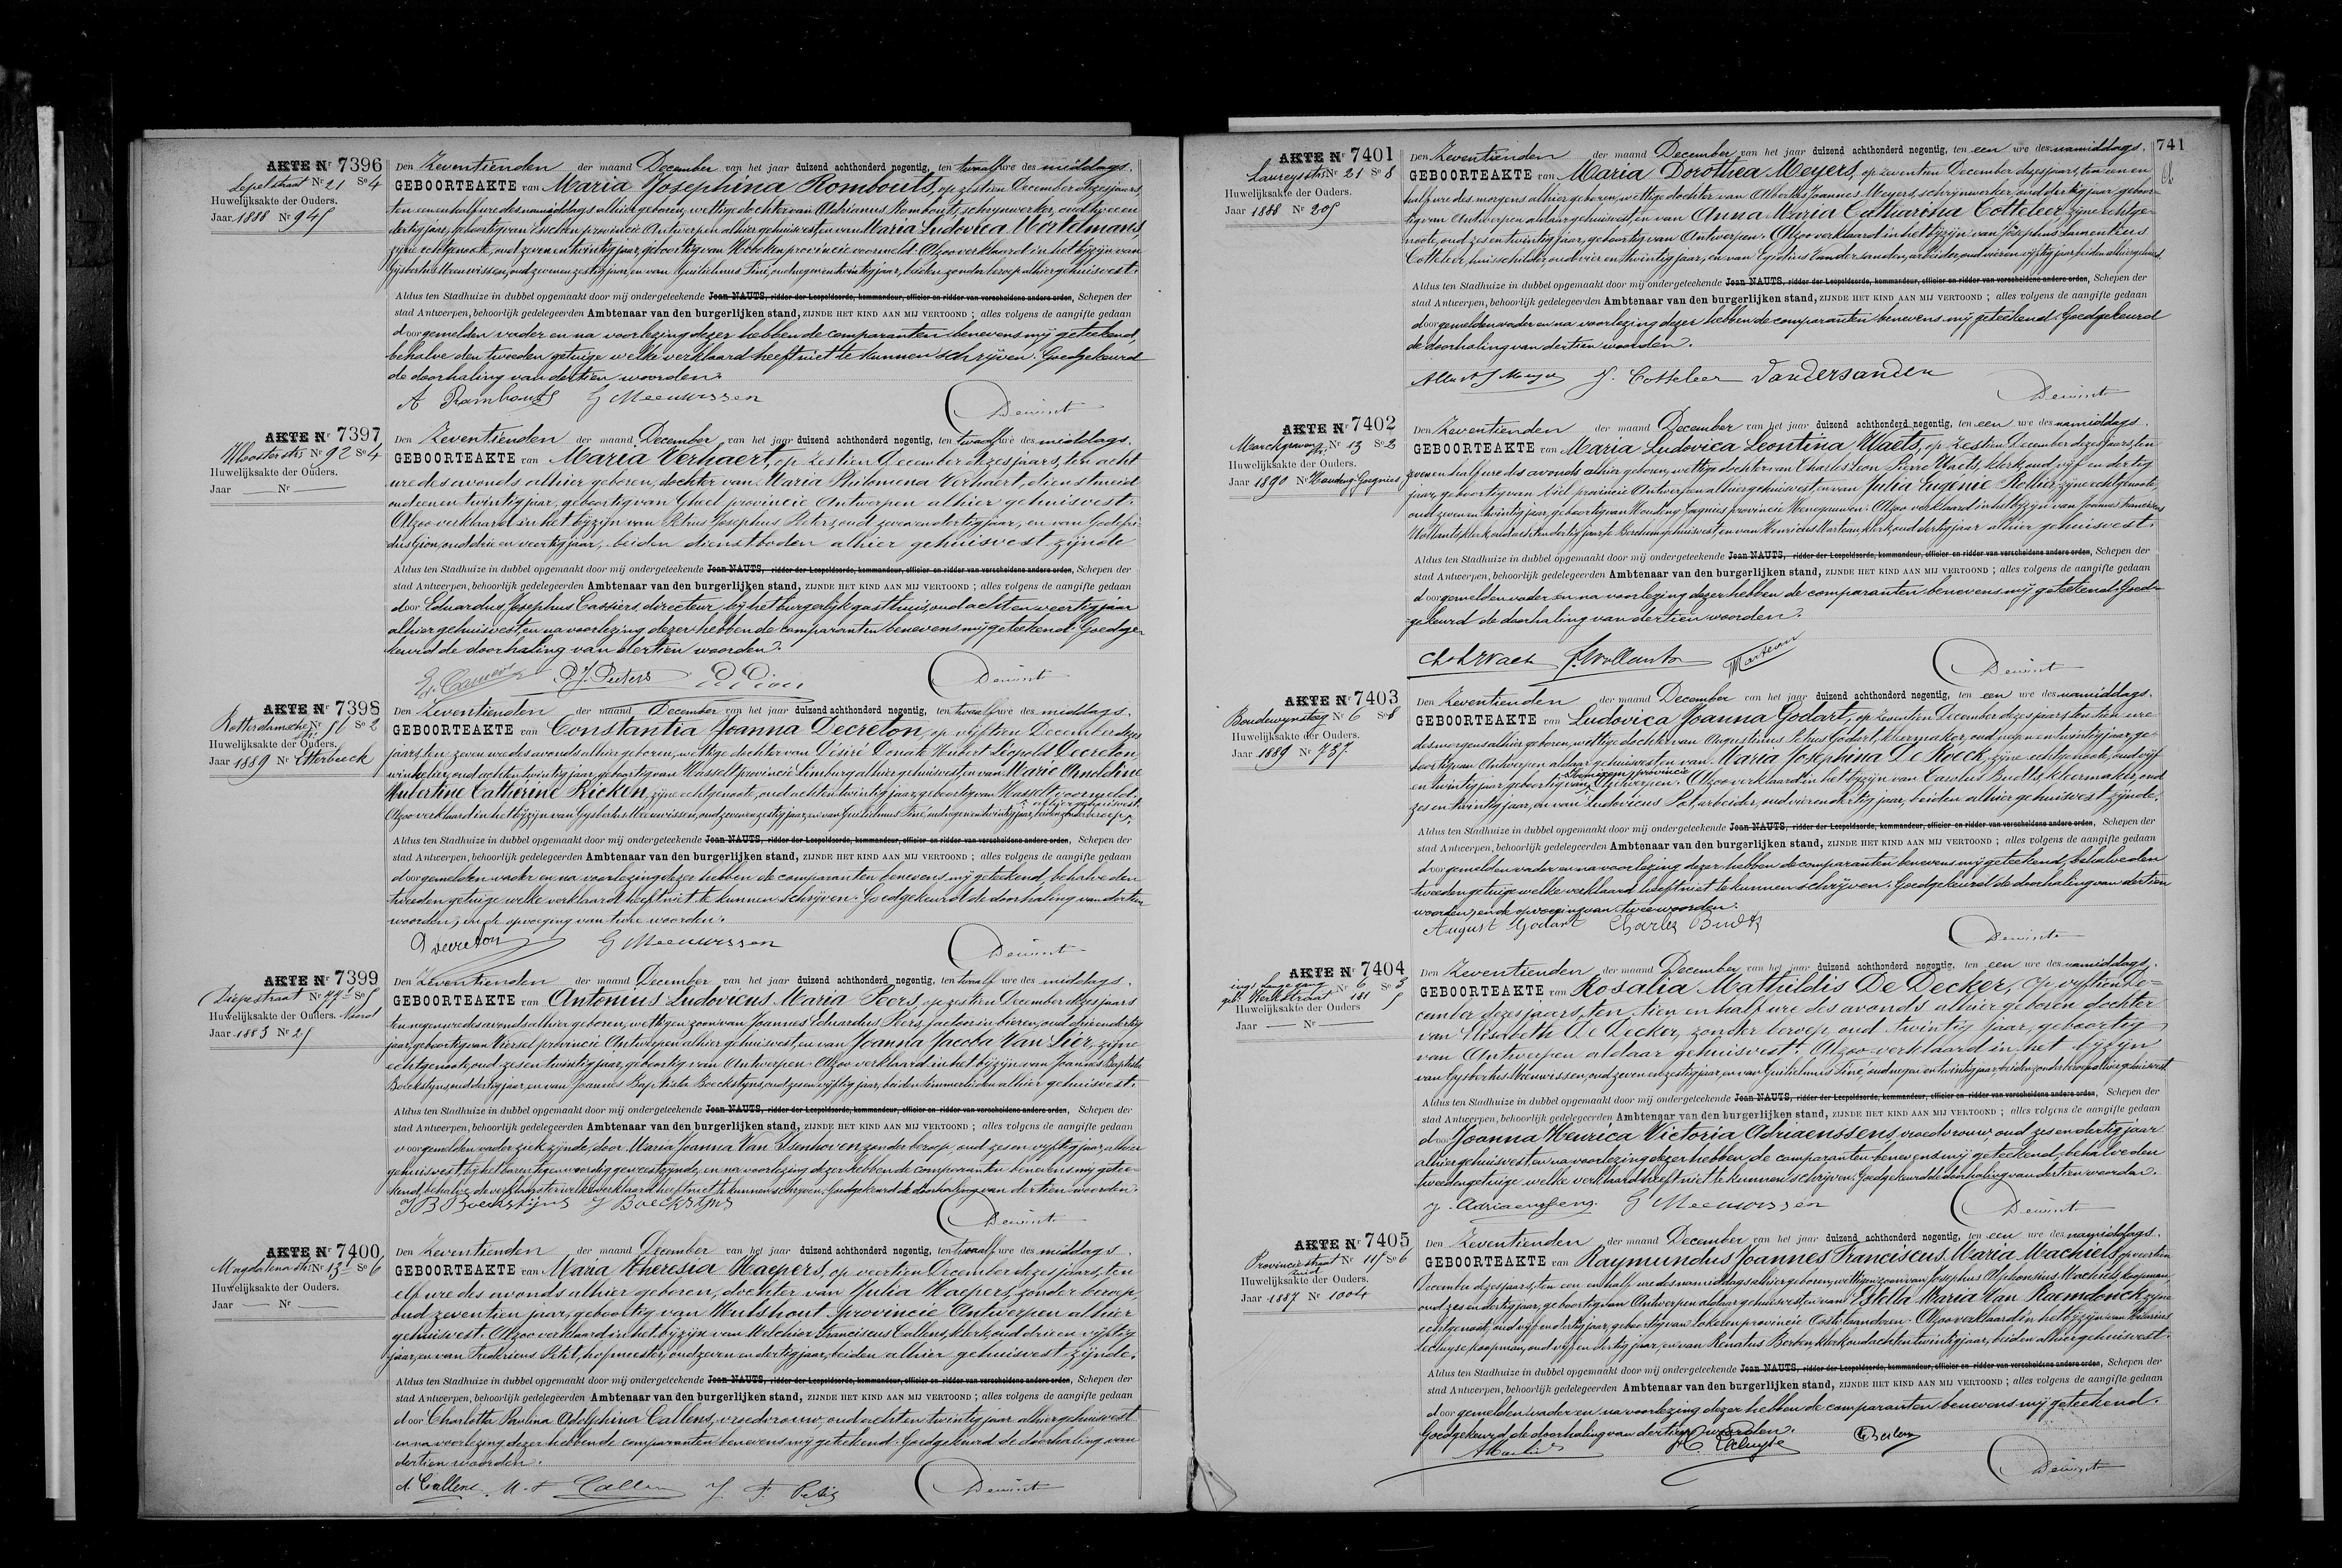 AKTE Nr 7396
Lepelstraat Nr 21 Se 4
Huwelijksakte der Ouders.
Jaar 1888 Nr 945
Den Zeventienden der maand December van het jaar duizend achthonderd negentig, ten twaalf ure des middags.
GEBOORTEAKTE van Maria Josephina Rombouts, op zestien December dezes jaars,
ten een en half ure des namiddags alhier geboren, wettige dochter van Adrianus Rombouts, schrijnwerker, oud twee en
dertig jaar, geboortig van Esschen provincie Antwerpen alhier gehuisvest, en van Maria Ludovica Mortelmans
zijne echtgenoote, oud zeven en twintig jaar, geboortig van Hoboken provincie voormeld. Alzoo verklaard in het bijzijn van
Gysbertus Meeuwissen, oud zeven en zestig jaar, en van Guilielmus Tiné, oud negen en twintig jaar, beiden zonder beroep alhier gehuisvest.
Aldus ten Stadhuize in dubbel opgemaakt door mij ondergeteekende Jean NAUTS, ridder der Leopoldsorde, kommandeur, officier en ridder van verscheidene andere orden, Schepen der
stad Antwerpen, behoorlijk gedelegeerden Ambtenaar van den burgerlijken stand, ZIJNDE HET KIND AAN MIJ VERTOOND ; alles volgens de aangifte gedaan
door gemelden vader en na voorlezing dezer hebben de comparanten benevens mij geteekend,
behalve den tweeden getuige welke verklaard heeft niet te kunnen schrijven. Goedgekeurd
de doorhaling van dertien woorden.
A Rombouts G Meeuwissen Dewint
AKTE Nr 7397
Kloosterstr. Nr 92 Se 4
Huwelijksakte der Ouders.
Jaar — Nr —
Den Zeventienden der maand December van het jaar duizend achthonderd negentig, ten twaalf ure des middags.
GEBOORTEAKTE van Maria Verhaert, op zestien December dezes jaars, ten acht
ure des avonds alhier geboren, dochter van Maria Philomena Verhaert, dienstmeid
oud een en twintig jaar, geboortig van Gheel provincie Antwerpen alhier gehuisvest.
Alzoo verklaard in het bijzijn van Petrus Josephus Peters, oud zeven en dertig jaar, en van Godefri-
dus Gion, oud drie en veertig jaar, beiden dienstboden alhier gehuisvest zijnde
Aldus ten Stadhuize in dubbel opgemaakt door mij ondergeteekende Jean NAUTS, ridder der Leopoldsorde, kommandeur, officier en ridder van verscheidene andere orden, Schepen der
stad Antwerpen, behoorlijk gedelegeerden Ambtenaar van den burgerlijken stand, ZIJNDE HET KIND AAN MIJ VERTOOND ; alles volgens de aangifte gedaan
door Eduardus Josephus Cassiers, directeur bij het burgerlijk gasthuis, oud acht en veertig jaar
alhier gehuisvest, en na voorlezing dezer hebben de comparanten benevens mij geteekend. Goedge-
keurd de doorhaling van dertien woorden.
P.J. Peeters Dewint
AKTE Nr 7398
Rotterdamsche str. Nr 56 Se 2
Huwelijksakte der Ouders.
Jaar 1889 Nr Etterbeeck
Den Zeventienden der maand December van het jaar duizend achthonderd negentig, ten twaalf ure des middags.
GEBOORTEAKTE van Constantia Joanna Decreton, op vijftien December dezes
jaars, ten zeven ure des avonds alhier geboren, wettige dochter van Désiré Donate Hubert Léopold Decreton,
winkelier, oud acht en twintig jaar, geboortig van Hasselt provincie Limburg alhier gehuisvest, en van Marie Arnoldine
Hubertine Catherine Ricken, zijne echtgenoote, oud acht en twintig jaar, geboortig van Hasselt voormeld.
Alzoo verklaard in het bijzijn van Gysbertus Meeuwissen, oud zeven en zestig jaar, en van Guilielmus Tiné, oud negen en twintig jaar, beiden zonder beroep alhier gehuisvest.
Aldus ten Stadhuize in dubbel opgemaakt door mij ondergeteekende Jean NAUTS, ridder der Leopoldsorde, kommandeur, officier en ridder van verscheidene andere orden, Schepen der
stad Antwerpen, behoorlijk gedelegeerden Ambtenaar van den burgerlijken stand, ZIJNDE HET KIND AAN MIJ VERTOOND ; alles volgens de aangifte gedaan
door gemelden vader en na voorlezing dezer hebben de comparanten benevens mij geteekend, behalve den
tweeden getuige welke verklaard heeft niet te kunnen schrijven. Goedgekeurd de doorhaling van dertien
woorden, en de opvoeging van twee woorden.
Decreton G Meeuwissen Dewint
AKTE Nr 7399
Diepestraat Nr 47 Se 5
Huwelijksakte der Ouders. Noord
Jaar 1883 Nr 25
Den Zeventienden der maand December van het jaar duizend achthonderd negentig, ten twaalf ure des middags.
GEBOORTEAKTE van Antonius Ludovicus Maria Peers, op zestien December dezes jaars
ten negen ure des avonds alhier geboren, wettigen zoon van Joannes Eduardus Peers, factoor in bieren, oud drie en dertig
jaar, geboortig van Viersel provincie Antwerpen alhier gehuisvest, en van Joanna Jacoba Van Lier, zijne
echtgenoote, oud zes en twintig jaar, geboortig van Antwerpen. Alzoo verklaard in het bijzijn van Joannes Baptista
Boeckstyns, oud dertig jaar, en van Joannes Baptista Boeckstyns, oud zes en vijftig jaar, beiden timmerlieden alhier gehuisvest.
Aldus ten Stadhuize in dubbel opgemaakt door mij ondergeteekende Jean NAUTS, ridder der Leopoldsorde, kommandeur, officier en ridder van verscheidene andere orden, Schepen der
stad Antwerpen, behoorlijk gedelegeerden Ambtenaar van den burgerlijken stand, ZIJNDE HET KIND AAN MIJ VERTOOND ; alles volgens de aangifte gedaan
voorgemelden vader ziek zijnde, door Maria Joanna Van Ysenhoven, zonder beroep, oud zes en vijftig jaar, alhier
gehuisvest, bij het baren tegenwoordig geweest zijnde, en na voorlezing dezer hebben de comparanten benevens mij getee-
kend, behalve de verklaarster welke verklaard heeft niet te kunnen schrijven. Goedgekeurd de doorhaling van dertien woorden.
J B Boeckstijns J Boeckstijns Dewint
AKTE Nr 7400
Magdalena str. Nr 13 Se 6
Huwelijksakte der Ouders.
Jaar — Nr —
Den Zeventienden der maand December van het jaar duizend achthonderd negentig, ten twaalf ure des middags.
GEBOORTEAKTE van Maria Theresia Haepers, op veertien December dezes jaars, ten
elf ure des avonds alhier geboren, dochter van Julia Haepers, zonder beroep,
oud zeventien jaar, geboortig van Hulshout provincie Antwerpen alhier
gehuisvest. Alzoo verklaard in het bijzijn van Melchior Franciscus Callens, klerk, oud drie en vijftig
jaar, en van Fredericus Petit, hofmeester, oud zeven en dertig jaar, beiden alhier gehuisvest zijnde.
Aldus ten Stadhuize in dubbel opgemaakt door mij ondergeteekende Jean NAUTS, ridder der Leopoldsorde, kommandeur, officier en ridder van verscheidene andere orden, Schepen der
stad Antwerpen, behoorlijk gedelegeerden Ambtenaar van den burgerlijken stand, ZIJNDE HET KIND AAN MIJ VERTOOND ; alles volgens de aangifte gedaan
door Charlotta Paulina Adelphina Callens, vroedvrouw, oud acht en twintig jaar alhier gehuisvest
en na voorlezing dezer hebben de comparanten benevens mij geteekend. Goedgekeurd de doorhaling van
dertien woorden.
A. Callens M. F Callens J. F. Petit Dewint
741
AKTE Nr 7401
Laureysstr. Nr 21 Se 8
Huwelijksakte der Ouders.
Jaar 1888 Nr 205
Den Zeventienden der maand December van het jaar duizend achthonderd negentig, ten een ure des namiddags.
GEBOORTEAKTE van Maria Dorothea Meyers, op zeventien December dezes jaars, ten een en
half ure des morgens alhier geboren, wettige dochter van Albertus Joannes Meyers, schrijnwerker, oud dertig jaar, geboor-
tig van Antwerpen aldaar gehuisvest, en van Anna Maria Catharina Cotteleer, zijne echtge-
noote, oud zes en twintig jaar, geboortig van Antwerpen. Alzoo verklaard in het bijzijn van Josephus Clementius
Cotteleer, huisschilder, oud vier en twintig jaar, en van Egidius Vandersanden, arbeider, oud vier en vijftig jaar, beiden alhier gehuisvest.
Aldus ten Stadhuize in dubbel opgemaakt door mij ondergeteekende Jean NAUTS, ridder der Leopoldsorde, kommandeur, officier en ridder van verscheidene andere orden, Schepen der
stad Antwerpen, behoorlijk gedelegeerden Ambtenaar van den burgerlijken stand, ZIJNDE HET KIND AAN MIJ VERTOOND ; alles volgens de aangifte gedaan
door gemelden vader en na voorlezing dezer hebben de comparanten benevens mij geteekend. Goedgekeurd
de doorhaling van dertien woorden.
Albert J Meyers J. Cotteleer Vandersanden Dewint
AKTE Nr 7402
Marckgrave str. Nr 13 Se 2
Huwelijksakte der Ouders.
Jaar 1890 Nr Houdeng-Goegnies
Den Zeventienden der maand December van het jaar duizend achthonderd negentig, ten een ure des namiddags.
GEBOORTEAKTE van Maria Ludovica Leontina Waets, op zestien December dezes jaars, ten
zeven en half ure des avonds alhier geboren, wettige dochter van Charles Leon Pierre Waets, klerk, oud vijf en dertig
jaar, geboortig van Niel provincie Antwerpen alhier gehuisvest, en van Julia Eugenie Rohier, zijne echtgenoote,
oud zeven en twintig jaar, geboortig van Houdeng Goegnies provincie Henegouwen. Alzoo verklaard in het bijzijn van Joannes Franciscus
Wollants, klerk, oud acht en dertig jaar, te Berchem gehuisvest, en van Henricus Marteau, klerk, oud dertig jaar alhier gehuisvest.
Aldus ten Stadhuize in dubbel opgemaakt door mij ondergeteekende Jean NAUTS, ridder der Leopoldsorde, kommandeur, officier en ridder van verscheidene andere orden, Schepen der
stad Antwerpen, behoorlijk gedelegeerden Ambtenaar van den burgerlijken stand, ZIJNDE HET KIND AAN MIJ VERTOOND ; alles volgens de aangifte gedaan
door gemelden vader en na voorlezing dezer hebben de comparanten benevens mij geteekend. Goed-
gekeurd de doorhaling van dertien woorden.
Marteau Dewint
AKTE Nr 7403
Boudewynsteeg Nr 6 Se 8
Huwelijksakte der Ouders.
Jaar 1889 Nr 787
Den Zeventienden der maand December van het jaar duizend achthonderd negentig, ten een ure des namiddags.
GEBOORTEAKTE van Ludovica Joanna Godart, op zeventien December dezes jaars, ten tien ure
des morgens alhier geboren, wettige dochter van Augustinus Petrus Godart, kleermaker, oud negen en twintig jaar, ge-
boortig van Antwerpen aldaar gehuisvest, en van Maria Josephina De Roeck, zijne echtgenoote, oud vijf
en twintig jaar, geboortig van Rumpst provincie Antwerpen. Alzoo verklaard in het bijzijn van Carolus Budts, kleermaker, oud
zes en twintig jaar, en van Ludovicus Pot, arbeider, oud vier en dertig jaar, beiden alhier gehuisvest zijnde.
Aldus ten Stadhuize in dubbel opgemaakt door mij ondergeteekende Jean NAUTS, ridder der Leopoldsorde, kommandeur, officier en ridder van verscheidene andere orden, Schepen der
stad Antwerpen, behoorlijk gedelegeerden Ambtenaar van den burgerlijken stand, ZIJNDE HET KIND AAN MIJ VERTOOND ; alles volgens de aangifte gedaan
door gemelden vader en na voorlezing dezer hebben de comparanten benevens mij geteekend, behalve den
tweeden getuige welke verklaard heeft niet te kunnen schrijven. Goedgekeurd de doorhaling van dertien
woorden, en de opvoeging van twee woorden.
August Godart Charles Budts Dewint
AKTE Nr 7404
Nr 6 Se 3
Werfstraat 181 5
Huwelijksakte der Ouders
Jaar — Nr —
Den Zeventienden der maand December van het jaar duizend achthonderd negentig, ten een ure des namiddags.
GEBOORTEAKTE van Rosalia Mathildis De Decker, op vijftien De-
cember dezes jaars, ten tien en half ure des avonds alhier geboren dochter
van Elisabeth De Decker, zonder beroep, oud twintig jaar, geboortig
van Antwerpen aldaar gehuisvest. Alzoo verklaard in het bijzijn
van Gysbertus Meeuwissen, oud zeven en zestig jaar, en van Guilielmus Tiné, oud negen en twintig jaar, beiden zonder beroep alhier gehuisvest
Aldus ten Stadhuize in dubbel opgemaakt door mij ondergeteekende Jean NAUTS, ridder der Leopoldsorde, kommandeur, officier en ridder van verscheidene andere orden, Schepen der
stad Antwerpen, behoorlijk gedelegeerden Ambtenaar van den burgerlijken stand, ZIJNDE HET KIND AAN MIJ VERTOOND ; alles volgens de aangifte gedaan
door Joanna Henrica Victoria Adriaenssens, vroedvrouw, oud zes en dertig jaar
alhier gehuisvest, en na voorlezing dezer hebben de comparanten benevens mij geteekend, behalve den
tweeden getuige welke verklaard heeft niet te kunnen schrijven. Goedgekeurd de doorhaling van dertien woorden.
J. Adriaenssens. G Meeuwissen Dewint
AKTE Nr 7405
Provincie straat Zuid Nr 115 Se 6
Huwelijksakte der Ouders.
Jaar 1887 Nr 1004
Den Zeventienden der maand December van het jaar duizend achthonderd negentig, ten een ure des namiddags.
GEBOORTEAKTE van Raymundus Joannes Franciscus Maria Machiels, op veertien
December dezes jaars, ten een en half ure des namiddags alhier geboren, wettigen zoon van Josephus Alphonsius Machiels, koopman
oud zes en dertig jaar, geboortig van Antwerpen aldaar gehuisvest, en van Estella Maria Van Raemdonck, zijne
echtgenoote, oud vijf en dertig jaar, geboortig van Lokeren provincie Oost-Vlaanderen. Alzoo verklaard in het bijzijn van Hilarius
Lecluyse, koopman, oud vijf en dertig jaar, en van Renatus Berben, klerk, oud acht en twintig jaar, beiden alhier gehuisvest.
Aldus ten Stadhuize in dubbel opgemaakt door mij ondergeteekende Jean NAUTS, ridder der Leopoldsorde, kommandeur, officier en ridder van verscheidene andere orden, Schepen der
stad Antwerpen, behoorlijk gedelegeerden Ambtenaar van den burgerlijken stand, ZIJNDE HET KIND AAN MIJ VERTOOND ; alles volgens de aangifte gedaan
door gemelden vader en na voorlezing dezer hebben de comparanten benevens mij geteekend.
Goedgekeurd de doorhaling van dertien woorden.
H. Lecluyse Dewint